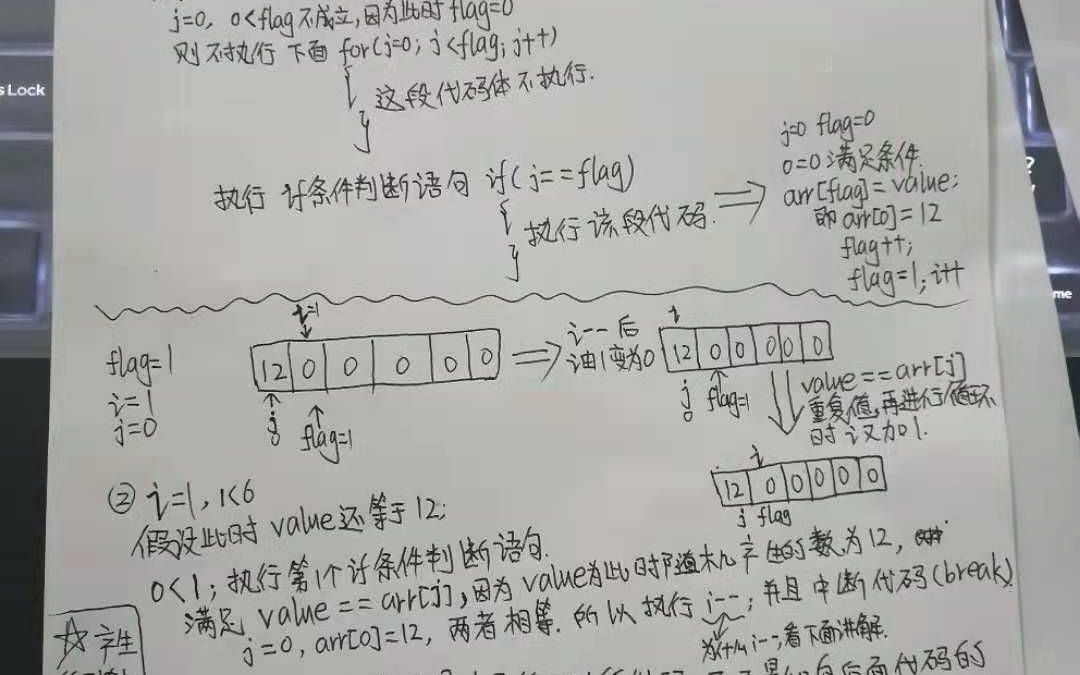 s Lock
j=0, 0<flag不成立,因为此时flag=0
则不执行 下面 for(j=0; j<flag; j++)
{
这段代码体不执行.
}
执行 if条件判断语句 if(j==flag)
{
执行该段代码.
}
⇒
j=0 flag=0
0=0满足条件.
arr[flag]=value;
即arr[0]=12
flag++;
flag=1; i++
?
me
i=1
flag=1
i=1
j=0
12 0 0 0 0 0
j
0
flag=1
⇒
i--后
i由1变为0
i
12 0 0 0 0 0
j
0
flag=1
value==arr[j]
重复值,再进行循环
时i又加1.
i
12 0 0 0 0 0
j flag
② i=1, 1<6
假设此时 value还等于12;
0<1; 执行第1个if条件判断语句.
满足 value==arr[j],因为value为此时随机产生的数为12,
j=0, arr[0]=12, 两者相等. 所以执行i--; 并且中断代码(break).
为什么i--;看下面讲解.
☆产生
后面代码的